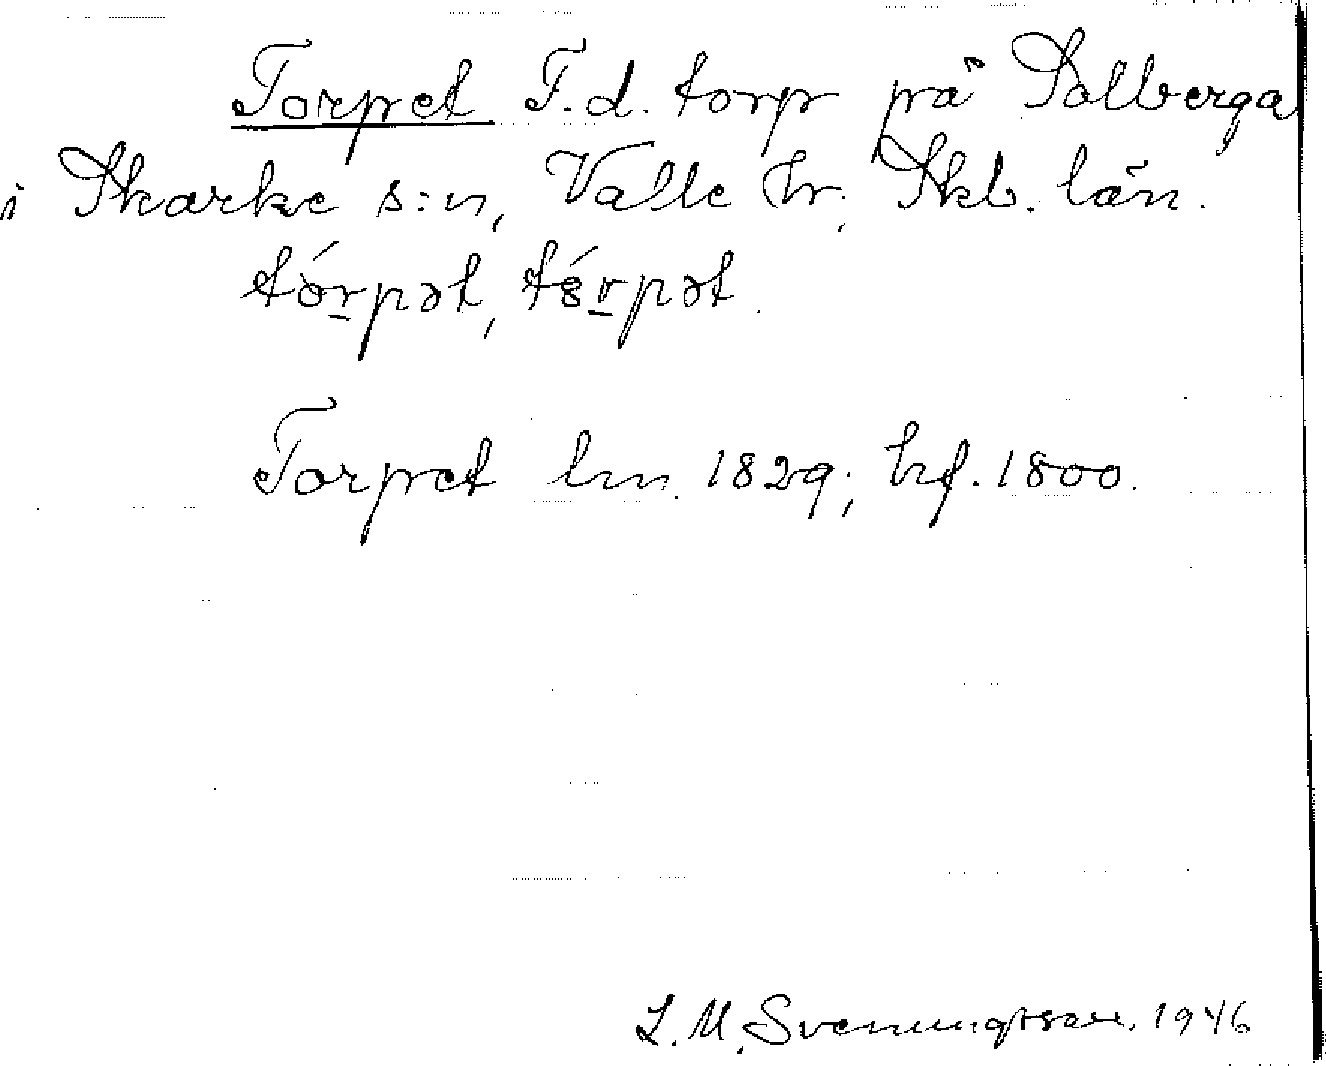 Torpet F.d. torp på Solberga
i Skarke s:n, Valle hr, Skb. län.
tórpət, tórpət.
Torpet lm. 1829; hf. 1800.
L. M. Svenungsson. 1946